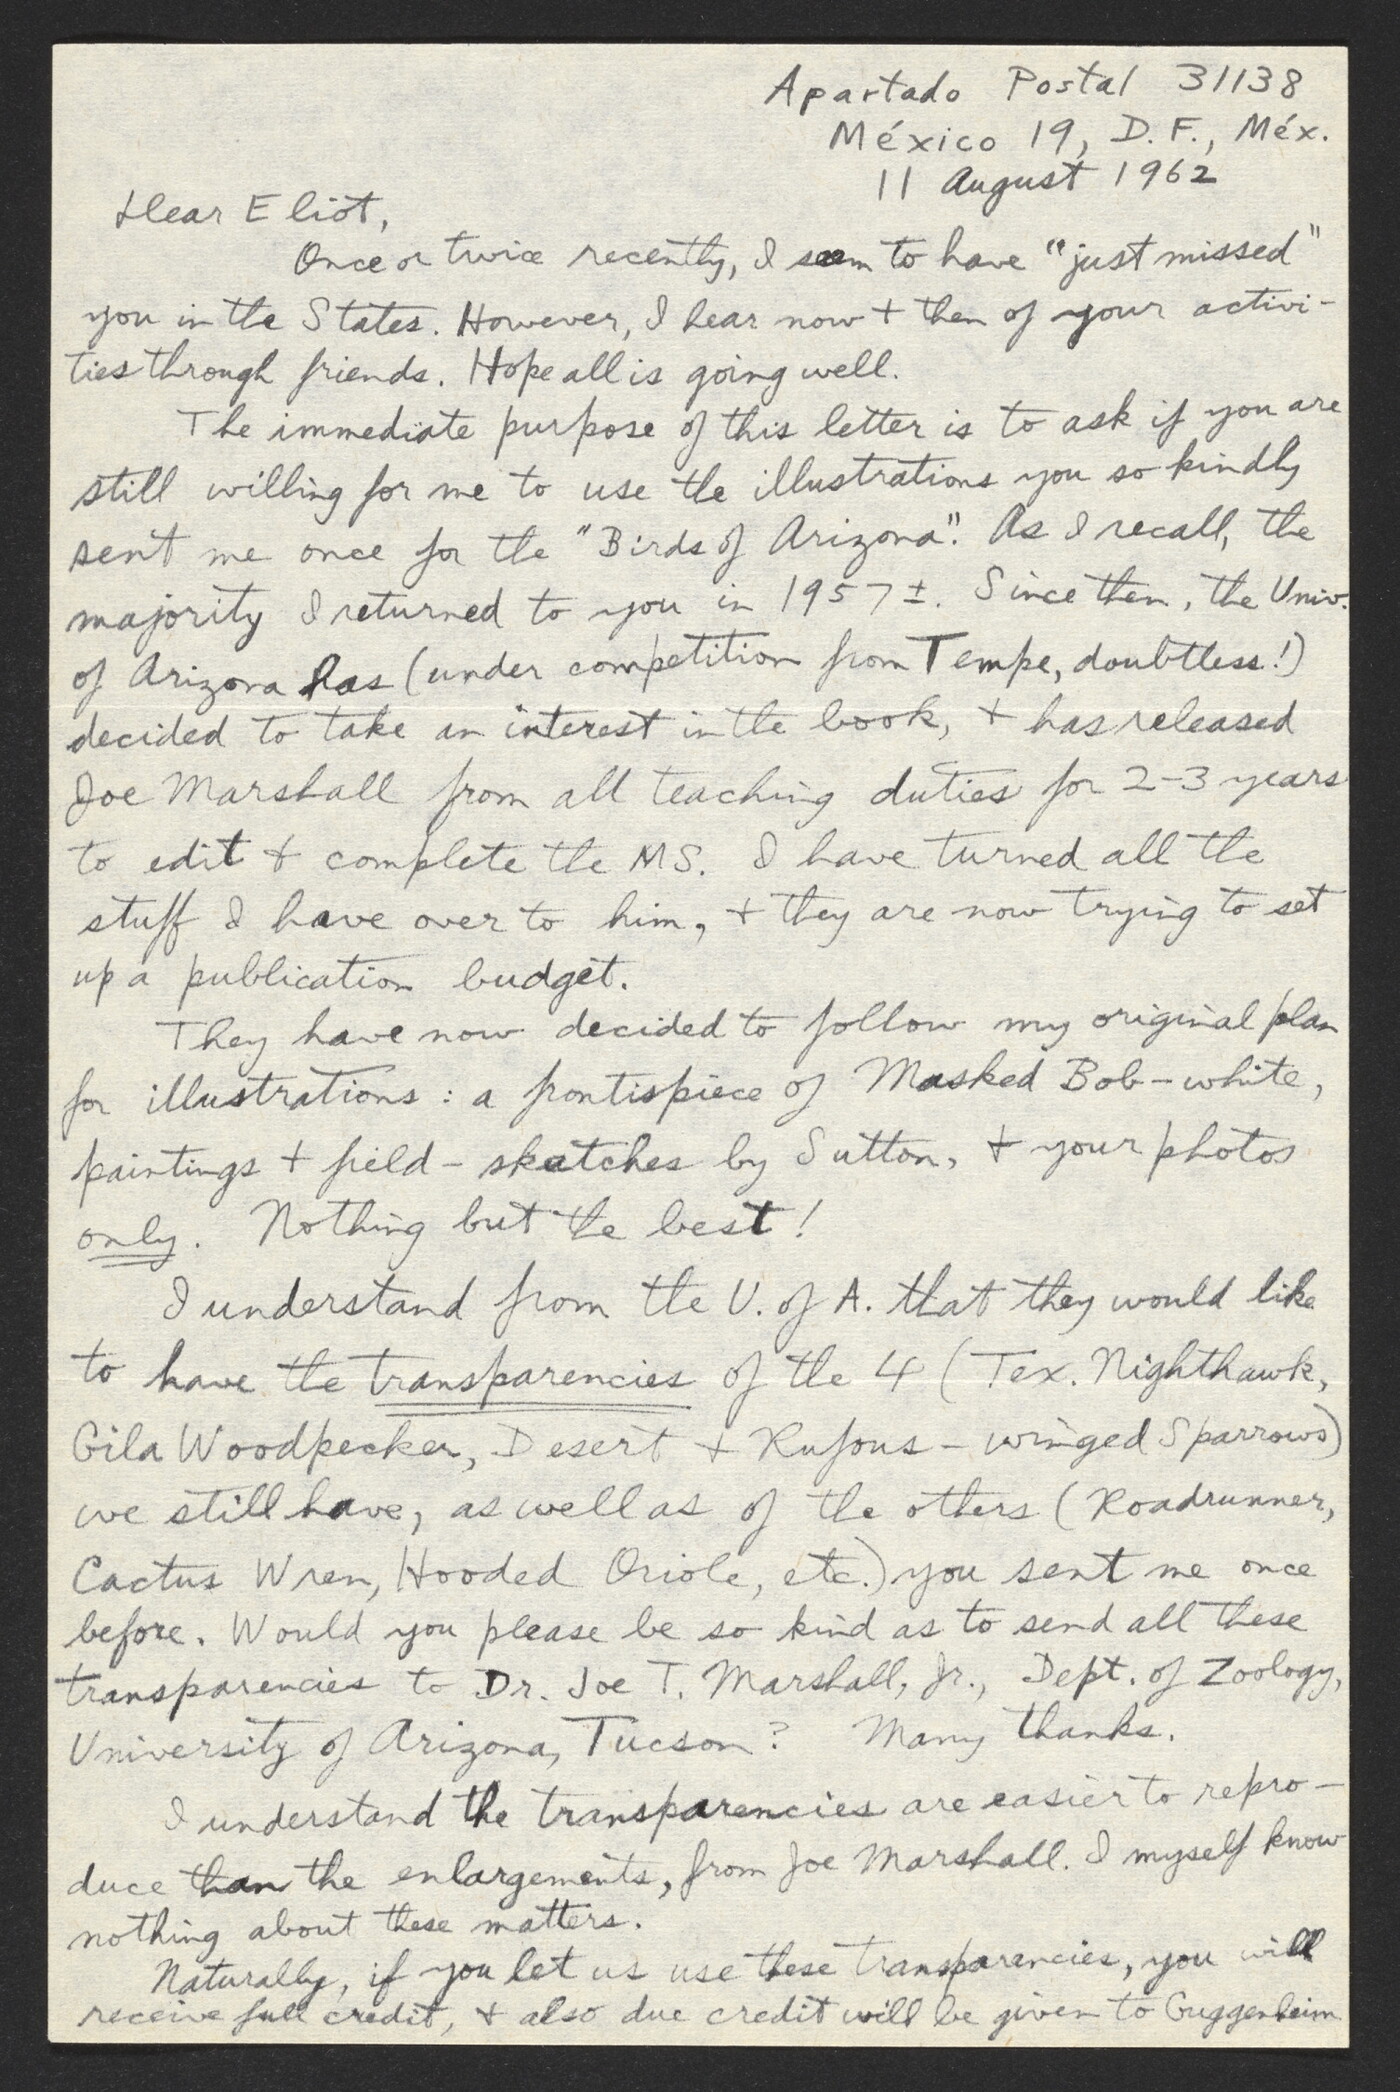 Apartado Postal 31138
México 19, D.F., Méx.
11 August 1962
Dear Eliot,
Once or twice recently, I seem to have "just missed"
you in the States. However, I hear now + then of your activi-
ties through friends. Hope all is going well.
The immediate purpose of this letter is to ask if you are
still willing for me to use the illustrations you so kindly
sent me once for the "Birds of Arizona". As I recall, the
majority I returned to you in 1957±. Since then, the Univ.
of Arizona has (under competition from Tempe, doubtless!)
decided to take an interest in the book, + has released
Joe Marshall from all teaching duties for 2-3 years
to edit + complete the MS. I have turned all the
stuff I have over to him, + they are now trying to set
up a publication budget.
They have now decided to follow my original plan
for illustrations: a frontispiece of Masked Bob-white,
paintings + field-sketches by Sutton, + your photos
only. Nothing but the best!
I understand from the U. of A. that they would like
to have the transparencies of the 4 (Tex. Nighthawk,
Gila Woodpecker, Desert + Rufous-winged Sparrows)
we still have, as well as of the others (Roadrunner,
Cactus Wren, Hooded Oriole, etc.) you sent me once
before. Would you please be so kind as to send all these
transparencies to Dr. Joe T. Marshall, Jr., Dept. of Zoology,
University of Arizona, Tucson? Many thanks.
I understand the transparencies are easier to repro-
duce than the enlargements, from Joe Marshall. I myself know
nothing about these matters.
Naturally, if you let us use these transparencies, you will
receive full credit, + also due credit will be given to Guggenheim